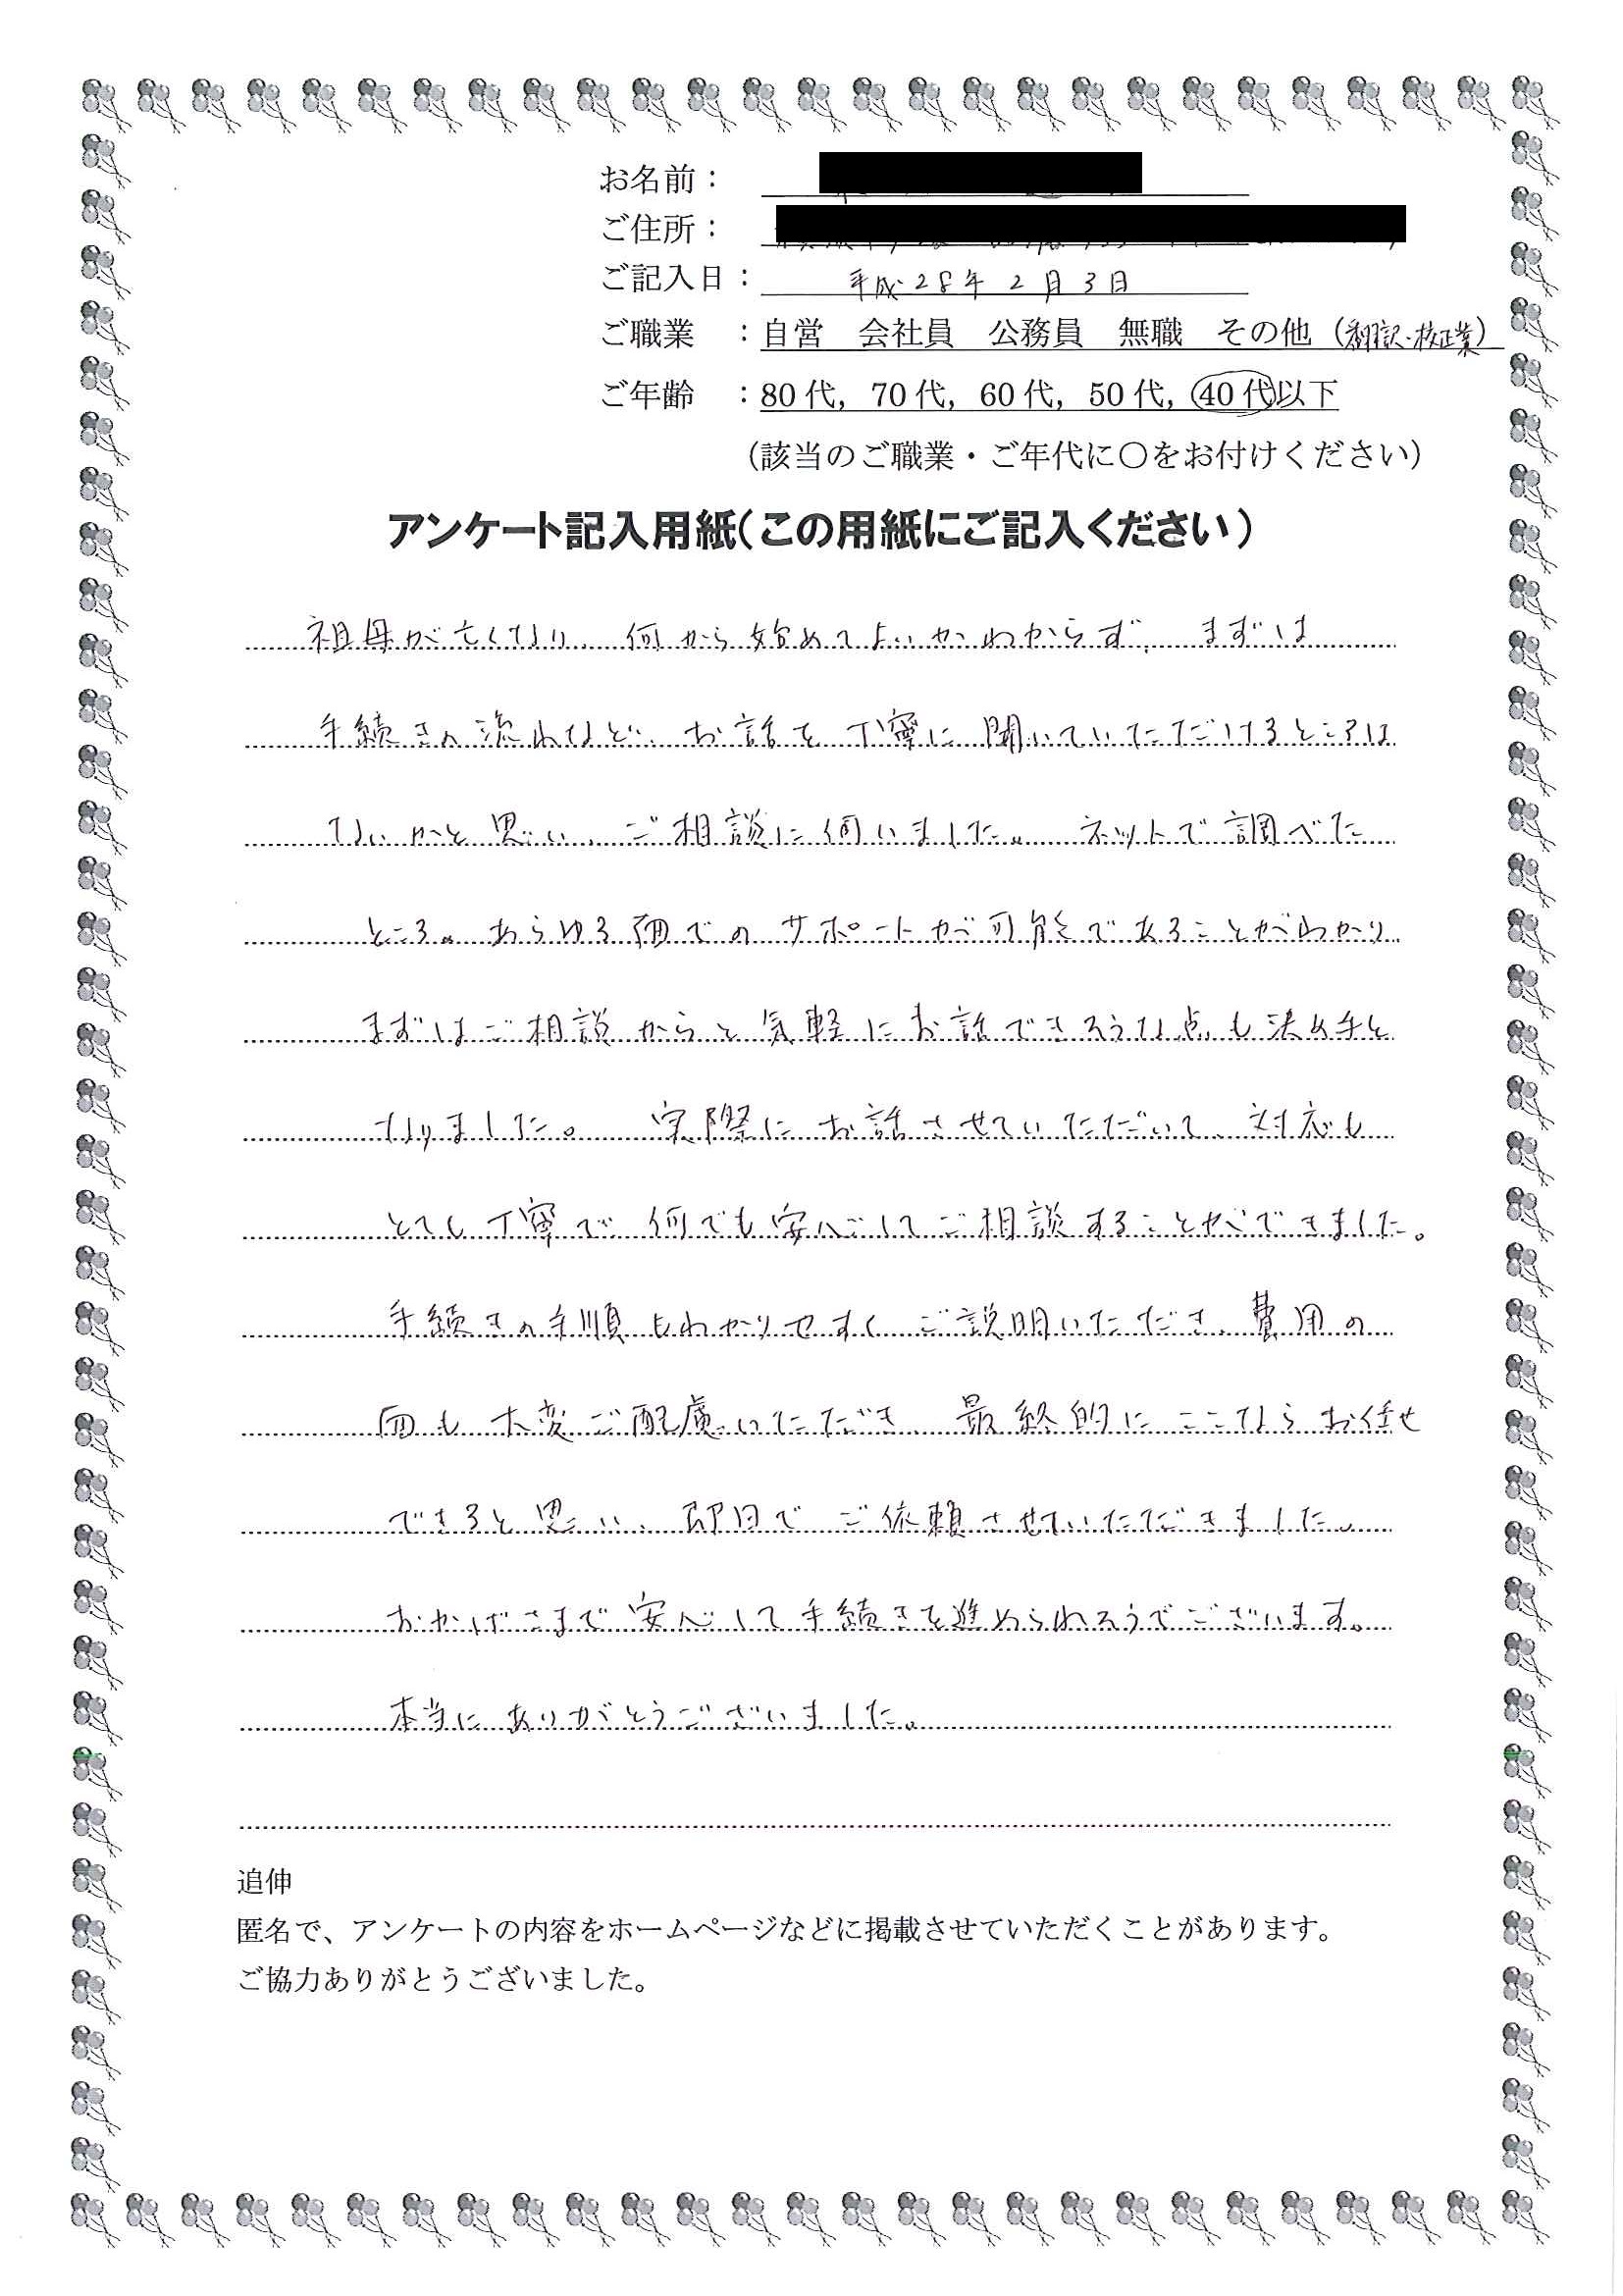 お名前：
ご住所：
ご記入日：　平成28年2月3日
ご職業　：自営　会社員　公務員　無職　その他（翻訳・校正業）
ご年齢　：80代，70代，60代，50代，40代以下
（該当のご職業・ご年代に〇をお付けください）
アンケート記入用紙（この用紙にご記入ください）
祖母が亡くなり、何から始めてよいかわからず、まずは
手続きの流れなど、お話を丁寧に聞いていただけるところは
ないかと思い、ご相談に伺いました。ネットで調べた
ところ。あらゆる面でのサポートが可能であることがわかり、
まずはご相談からと気軽にお話できそうな点も決め手と
なりました。実際にお話させていただいて、対応も
とても丁寧で、何でも安心してご相談することができました。
手続きの手順もわかりやすくご説明いただき、費用の
面も大変ご配慮いただき、最終的にここならお任せ
できると思い、即日でご依頼させていただきました。
おかげさまで安心して手続きを進められそうでございます。
本当にありがとうございました。
追伸
匿名で、アンケートの内容をホームページなどに掲載させていただくことがあります。
ご協力ありがとうございました。